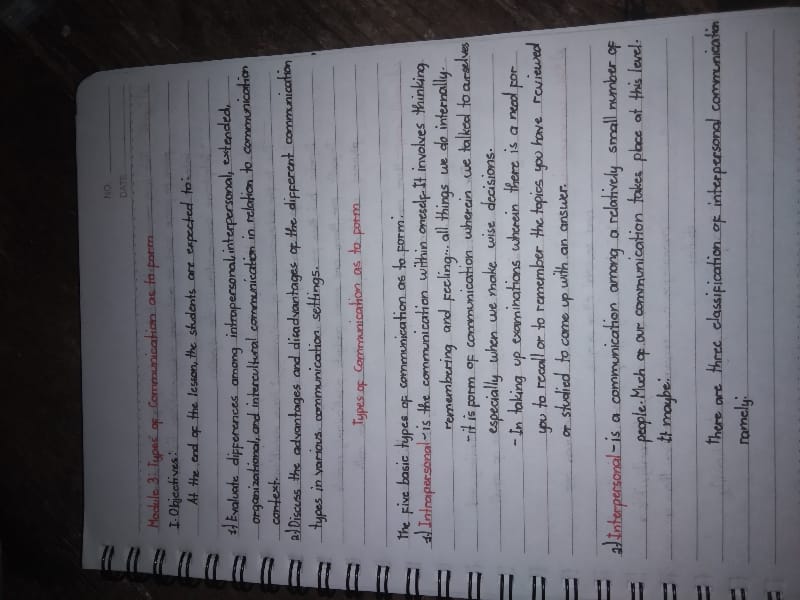 NO.
DATE
Module 3: Types of Communication as to form
I. Objectives:
At the end of the lesson, the students are expected to:
1) Evaluate differences among intrapersonal, interpersonal, extended,
organizational, and intercultural communication in relation to communication
context.
2) Discuss the advantages and disadvantages of the different communication
types in various communication settings.
Types of Communication as to form
The five basic types of communication as to form.
1) Intrapersonal - is the communication within oneself. It involves thinking,
remembering and feeling... all things we do internally.
- it is form of communication wherein we talked to ourselves
especially when we make wise decisions.
- In taking up examinations wherein there is a need for
you to recall or to remember the topics you have reviewed
or studied to come up with an answer.
2) Interpersonal - is a communication among a relatively small number of
people. Much of our communication takes place at this level.
It maybe:
There are three classification of interpersonal communication
namely: